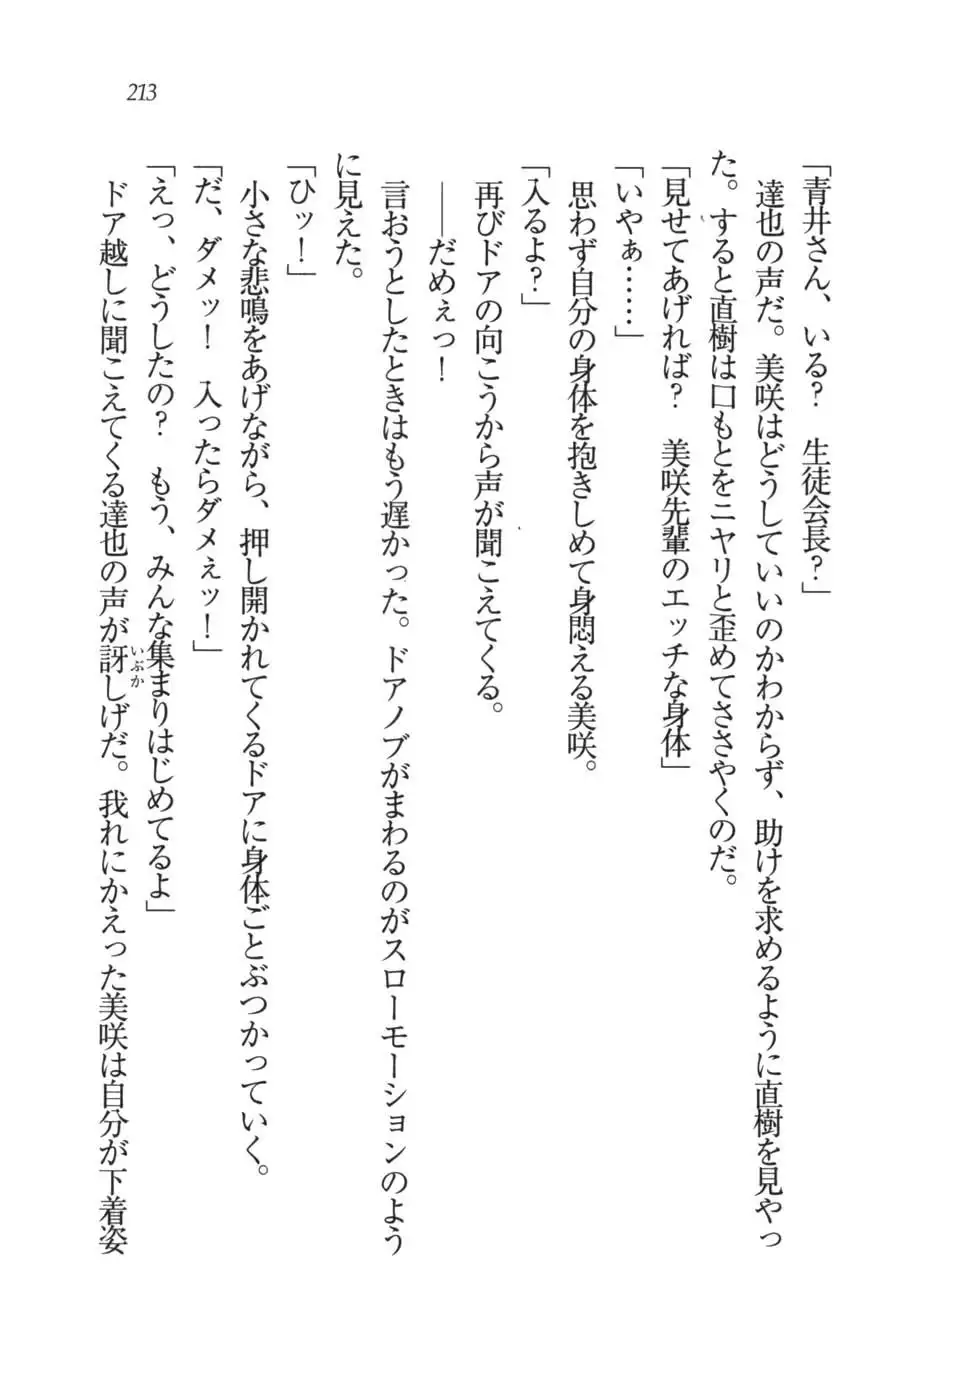 213
「青井さん、いる？　生徒会長？」
　達也の声だ。美咲はどうしていいのかわからず、助けを求めるように直樹を見やっ
た。すると直樹は口もとをニヤリと歪めてささやくのだ。
「見せてあげれば？　美咲先輩のエッチな身体」
「いやぁ……」
　思わず自分の身体を抱きしめて身悶える美咲。
「入るよ？」
　再びドアの向こうから声が聞こえてくる。
　――だめぇっ！
　言おうとしたときはもう遅かった。ドアノブがまわるのがスローモーションのよう
に見えた。
「ひッ！」
　小さな悲鳴をあげながら、押し開かれてくるドアに身体ごとぶつかっていく。
「だ、ダメッ！　入ったらダメぇッ！」
「えっ、どうしたの？　もう、みんな集まりはじめてるよ」
　ドア越しに聞こえてくる達也の声が訝いぶかしげだ。我れにかえった美咲は自分が下着姿